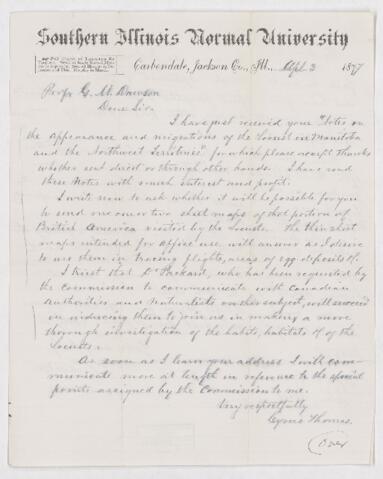 Southern Illinois Normal University
Carbondale, Jackson Co., Ill., Apl 3 1877
Profr G. M. Dawson
Dear Sir.
I have just received your "Notes on
the appearance and migrations of the Locust in Manitoba
and the Northwest Territories" for which please accept thanks
whether sent direct or through other hands. I have read
these Notes with much interest and profit.
I write now to ask whether it will be possible for you
to send one or two skel maps of that portion of
British America visited by the Locusts. The thin sheet
maps intended for office use will answer as I desire
to use them in tracing flights, areas of egg deposits &c.
I trust that Dr Packard, who has been requested by
the commission to communicate with Canadian
Authorities and Naturalists on this subject, will succeed
in inducing them to join us in making a more
thorough investigation of the habits, habitats &c of the
Locusts.
As soon as I learn your address I will com-
municate more at length in reference to the special
points assigned by the Commission to me.
Very respectfully
Cyrus Thomas.
(Over